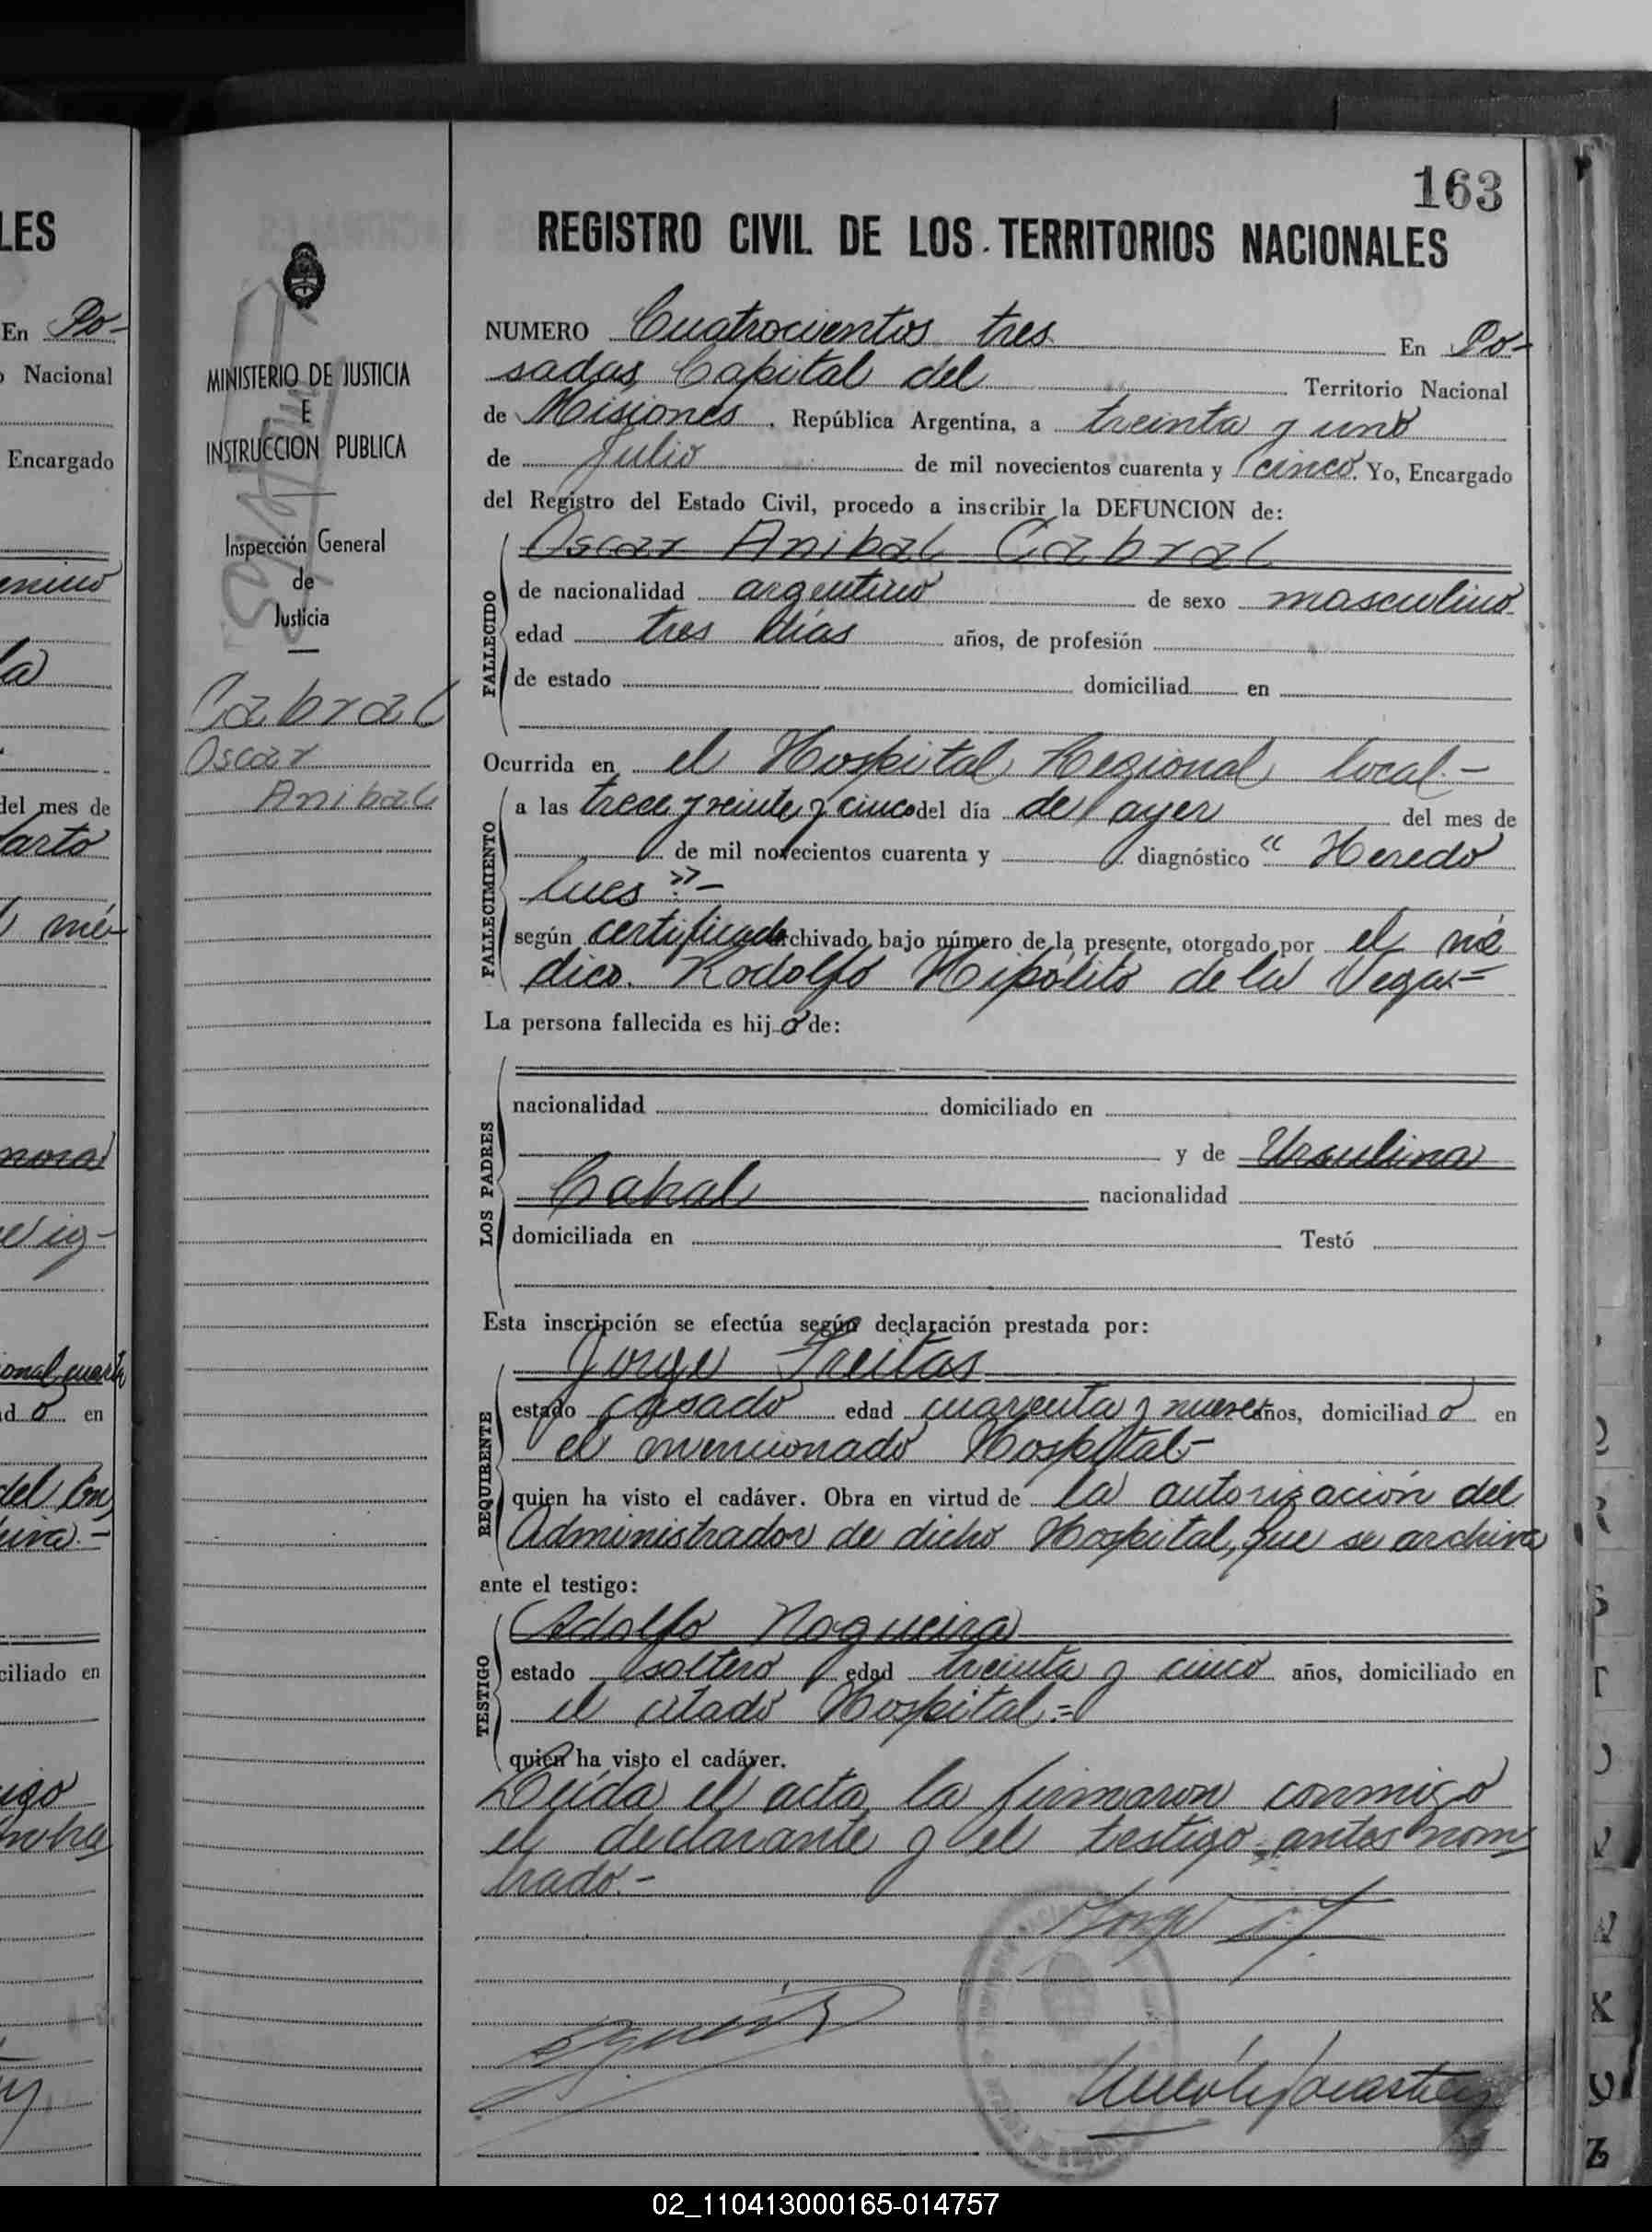 LES
En Po-
o Nacional
Encargado
del mes de
arto
mé-
nora
onal, cuarto
d o en
del En
hiva.-
ciliado en
igo
MINISTERIO DE JUSTICIA
E
INSTRUCCION PUBLICA
Inspección General
de
Justicia
Cabral
Oscar
Anibal
163
REGISTRO CIVIL DE LOS TERRITORIOS NACIONALES
NUMERO Cuatrocientos tres En Po-
sadas, Capital del Territorio Nacional
de Misiones, República Argentina, a treinta y uno
de Julio de mil novecientos cuarenta y cinco. Yo, Encargado
del Registro del Estado Civil, procedo a inscribir la DEFUNCION de:
Oscar Anibal Cabral
FALLECIDO
de nacionalidad argentino de sexo masculino
edad tres días años, de profesión
de estado domiciliad en
Ocurrida en el Hospital Regional local.-
FALLECIMIENTO
a las trece y veinte y cinco del día de ayer del mes de
de mil novecientos cuarenta y diagnóstico "Heredo
lues".-
según certificado archivado bajo número de la presente, otorgado por el mé
dico. Rodolfo Hipólito de la Vega.=
La persona fallecida es hijo de:
LOS PADRES
nacionalidad domiciliado en
y de Ursulina
Cabral nacionalidad
domiciliada en Testó
Esta inscripción se efectúa según declaración prestada por:
Jorge Freitas
REQUIRENTE
estado casado edad cuarenta y nueve años, domiciliado en
el mencionado Hospital-
quien ha visto el cadáver. Obra en virtud de la autorización del
Administrador de dicho Hospital, que se archiva
ante el testigo:
Adolfo Nogueira
TESTIGO
estado soltero edad treinta y cinco años, domiciliado en
el citado Hospital.=
quien ha visto el cadáver.
Leída el acta, la firmaron conmigo
el declarante y el testigo antes nom
brado.-
Jorge
02_110413000165-014757